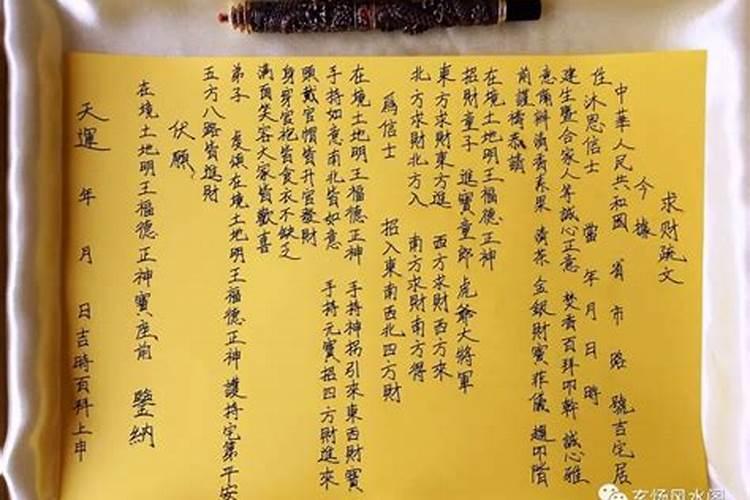 求财疏文
今據
中華人民共和國 省 市 路 號吉宅居
住 沐恩信士 當年 月 日 時
建生暨合家人等誠心正意 焚香百拜叩幹 誠心雅
意備辦清香春果 清茶 金銀財寶菲儀 趨叩階
前護禱恭請
在境土地明王福德正神
招財童子 進寶童郎 虎爺大將軍
東方求財東方進 西方求財西方來
北方求財北方入 南方求財南方得
為信士 招入東南西北四方財
在境土地明王福德正神 手持神拐引來東西財寶
手持如意南北皆如意 手持元寶招四方財進來
頭戴官帽皆升官發財
身穿官袍皆食衣不缺乏
滿面笑容大家皆歡喜
弟子 虔頌在境土地明王福德正神 護持宅第平安
五方八路皆進財
伏願
在境土地明王福德正神寶座前 鑒納
天運 年 月 日吉時百拜上申
玄场风水阁